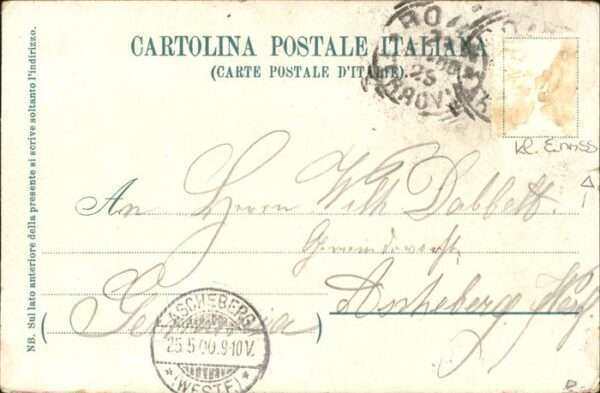 CARTOLINA POSTALE ITALIANA
(CARTE POSTALE D'ITALIE).
RO
25
kl. Einriss
An Herrn Wilh. Dabbelt.
Gemeindevorst.
Ascheberg Westf.
(Germania)
ASCHEBERG
25.5.00.9-10V.
*(WESTF.)*
NB. Sul lato anteriore della presente si scrive soltanto l'indirizzo.